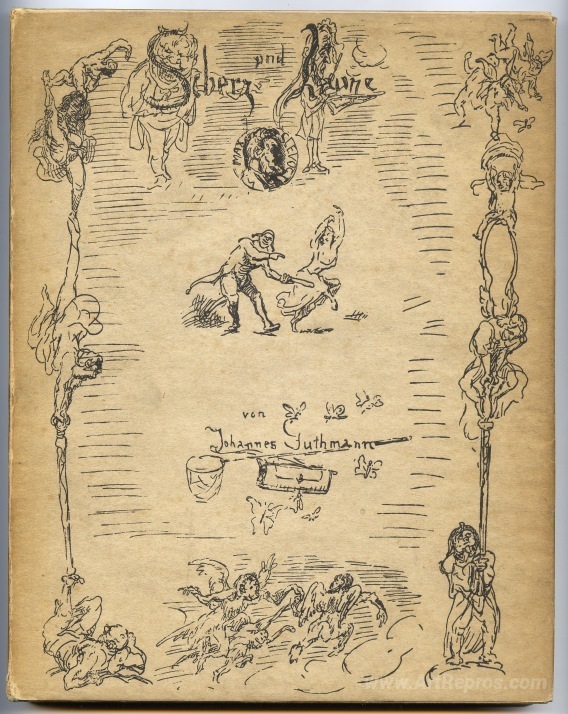 Scherz und Laune
von
Johannes Guthmann
www.ArtRepros.com